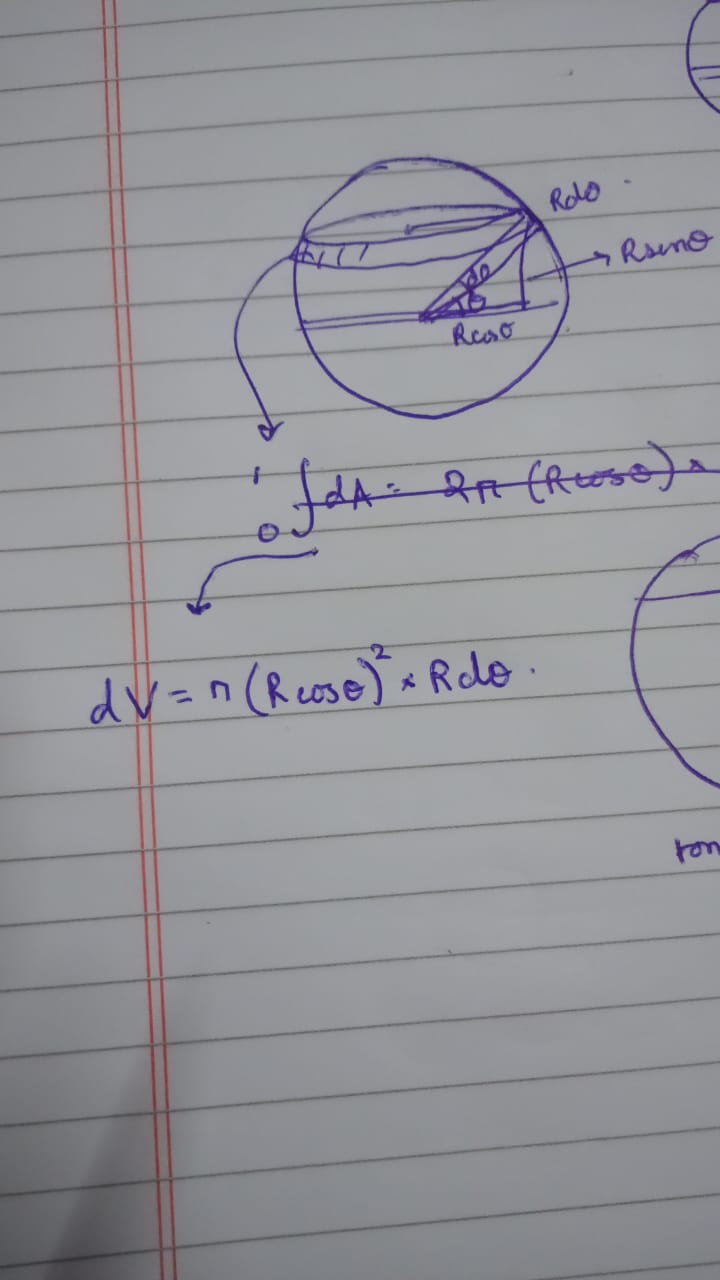 Rdθ
Rsinθ
dθ
θ
Rcosθ
1
∫dA = 2π (Rcosθ) ×
0
dV = π (R cosθ)² × Rdθ.